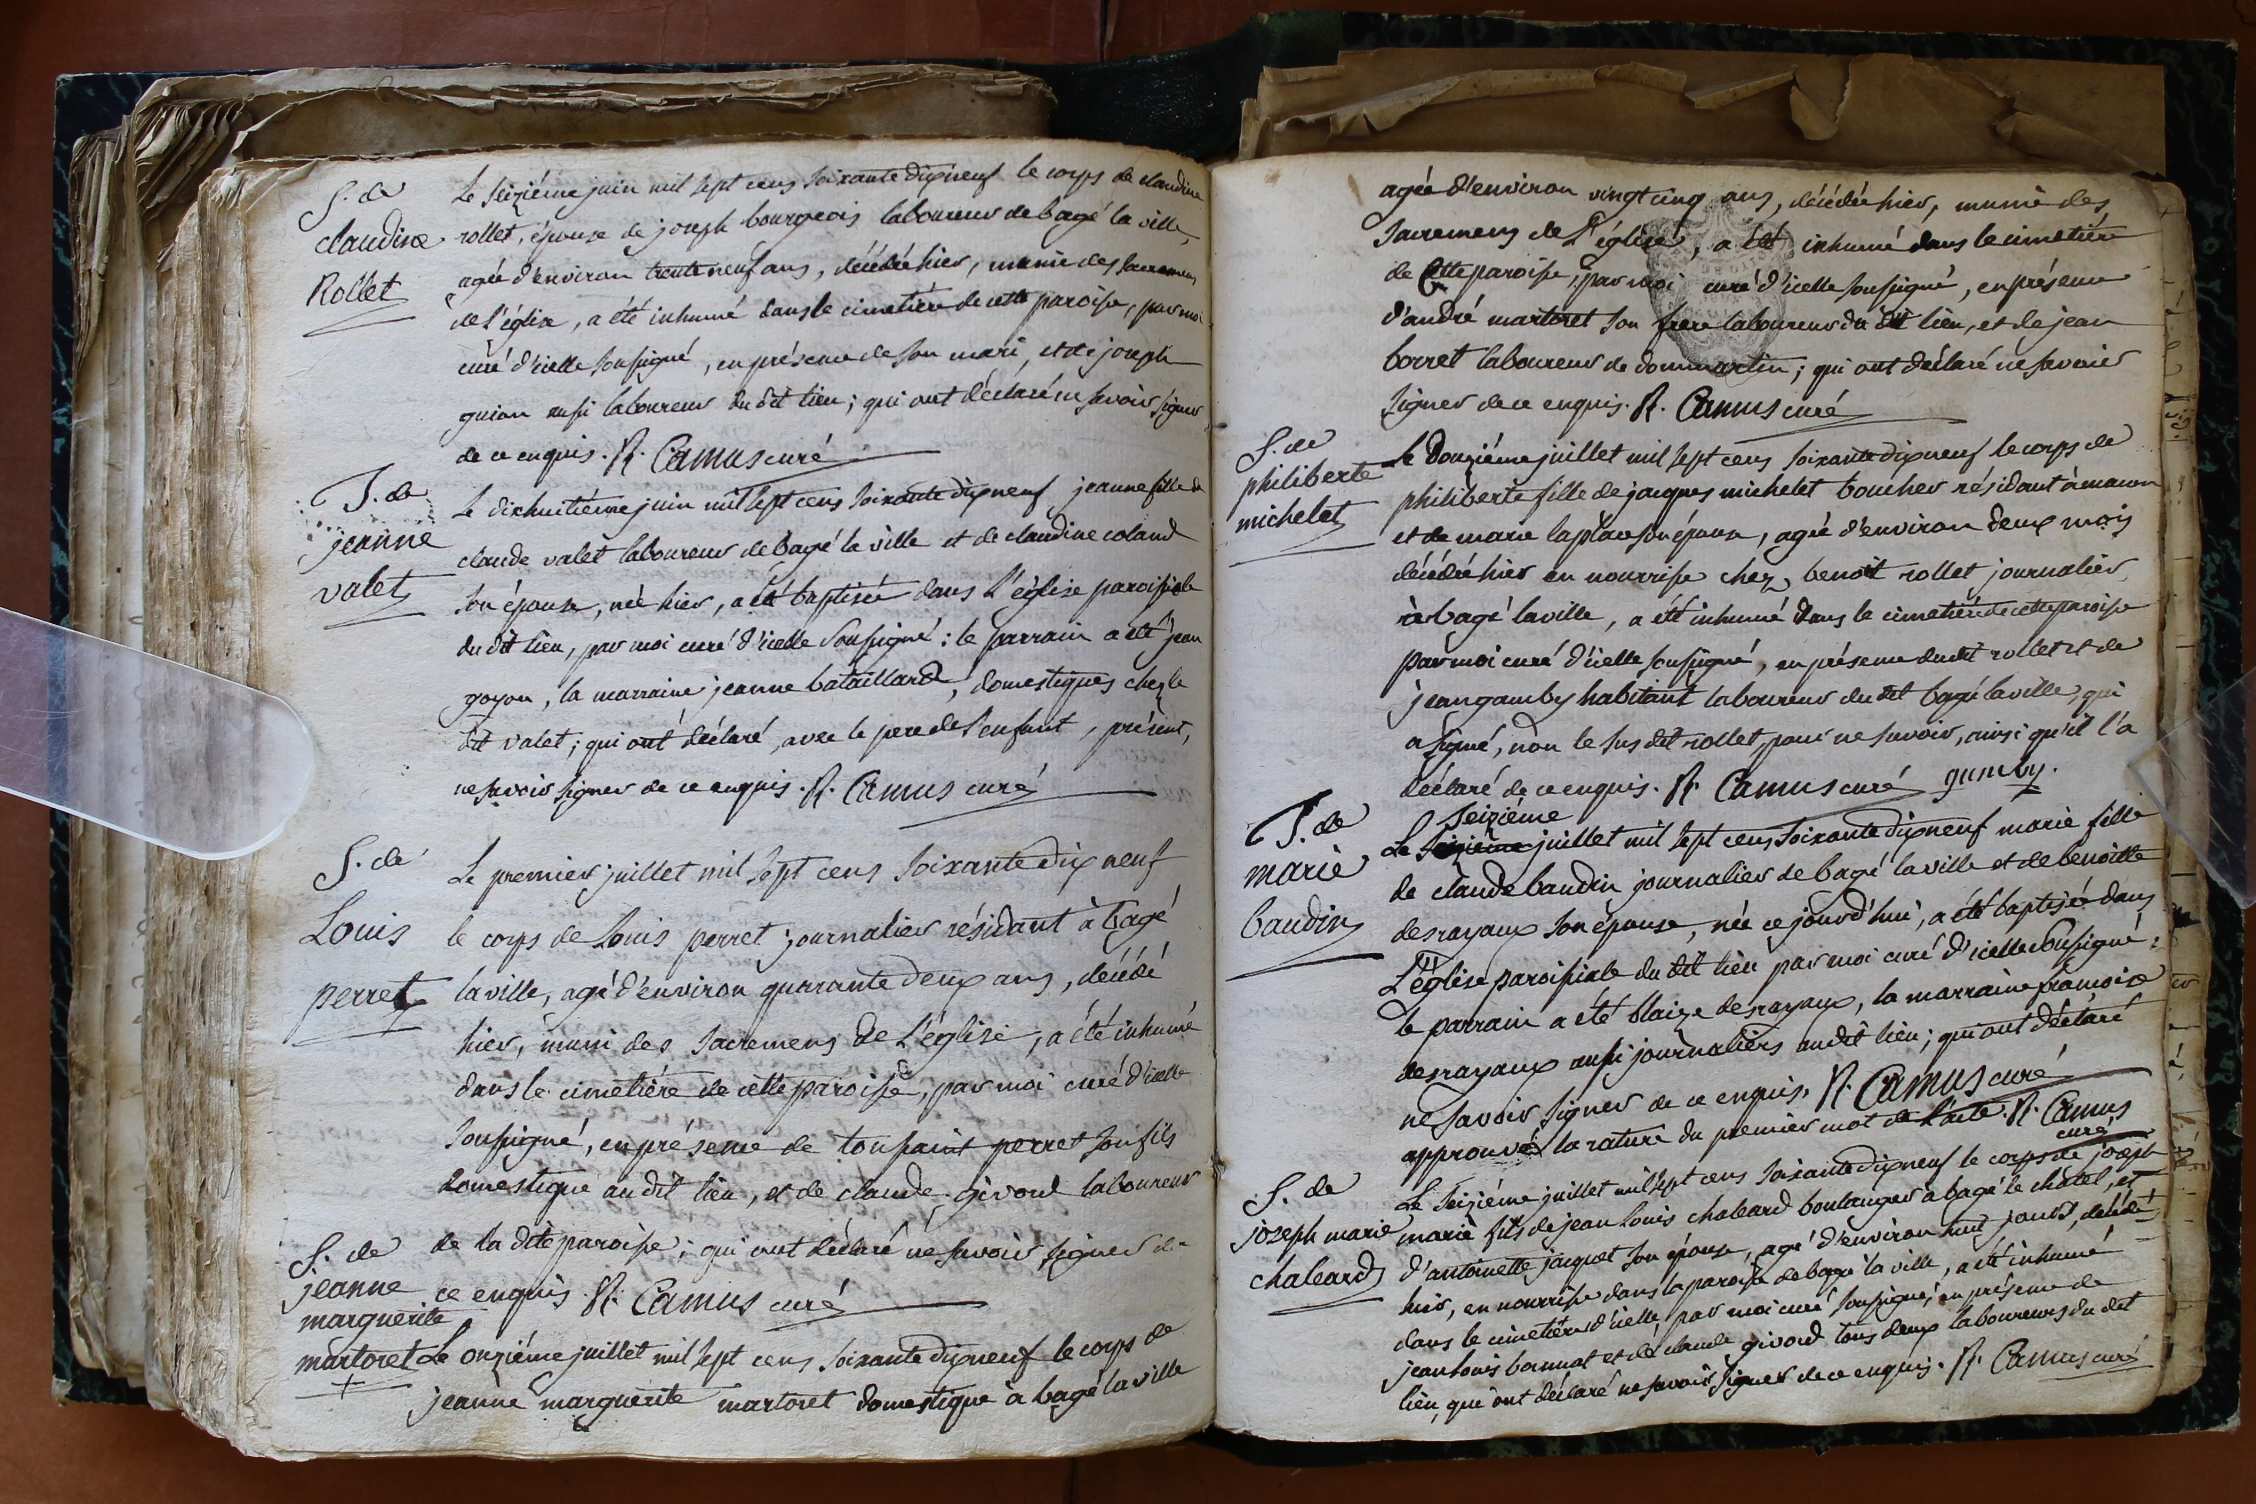 S. de
claudine
Rollet
Le seiziéme juin mil sept cens soixante dix neuf le corps de claudine
rollet, épouse de joseph bourgeois laboureur de bagé la ville,
agée d'environ trente neuf ans, décédée hier, munie des sacremens
de l'église, a été inhumé dans le cimetière de cette paroisse, par moi
curé d'icelle soussigné, en présence de son mari, et de joseph
guion aussi laboureur du dit lieu; qui ont déclaré ne savoir signer
de ce enquis. R. Camus curé
B. de
jeanne
valet
Le dixhuitiéme juin mil sept cens soixante dix neuf jeanne fille de
claude valet laboureur de bagé la ville et de claudine coland
son épouse, née hier, a été baptisée dans l'église paroissiale
du dit lieu, par moi curé d'icelle soussigné: le parrain a été jean
goyon, la marraine jeanne bataillard, domestiques chez le
dit valet; qui ont déclaré, avec le pere de l'enfant, présent,
ne savoir signer de ce enquis. R. Camus curé
S. de
Louis
perret
Le premier juillet mil sept cens soixante dix neuf
le corps de Louis perret journalier résidant à bagé
la ville, agé d'environ quarante deux ans, décédé
hier, muni des sacremens de l'église, a été inhumé
dans le cimetière de cette paroisse, par moi curé d'icelle
soussigné, en présence de toussaint perret son fils
domestique au dit lieu, et de claude givord laboureur
de la dite paroisse; qui ont déclaré ne savoir signer de
ce enquis. R. Camus curé
S. de
jeanne
marguerite
martoret
Le onziéme juillet mil sept cens soixante dix neuf le corps de
jeanne marguerite martoret domestique à bagé la ville
agée d'environ vingt cinq ans, décédée hier, munie des
sacremens de l'église, a été inhumé dans le cimetière
de cette paroisse, par moi curé d'icelle soussigné, en présence
d'andré martoret son frere laboureur du dit lieu, et de jean
borret laboureur de dommartin; qui ont déclaré ne savoir
signer de ce enquis. R. Camus curé
S. de
philiberte
michelet
Le douziéme juillet mil sept cens soixante dix neuf le corps de
philiberte fille de jacques michelet boucher résidant à macon
et de marie laplace son épouse, agée d'environ deux mois
décédée hier en nourrisse chez benoit rollet journalier
à bagé la ville, a été inhumé dans le cimetière de cette paroisse
par moi curé d'icelle soussigné, en présence du dit rollet et de
jean gamby habitant laboureur du dit bagé la ville, qui
a signé, non le sus dit rollet, pour ne savoir, ainsi qu'il l'a
déclaré de ce enquis. R. Camus curé gamby.
B. de
marie
baudin
seiziéme
Le juillet mil sept cens soixante dix neuf marie fille
de claude baudin journalier de bagé la ville et de benoitte
desrayaux son épouse, née ce jourd'hui, a été baptisée dans
l'église paroissiale du dit lieu par moi curé d'icelle soussigné:
le parrain a été blaize desrayaux, la marraine francoise
desrayaux aussi journaliers au dit lieu; qui ont déclaré
ne savoir signer de ce enquis. R. Camus curé
approuvé la rature du premier mot de l'acte. R. Camus
curé
S. de
joseph marie
chaleard
Le seiziéme juillet mil sept cens soixante dix neuf le corps de joseph
marie fils de jean louis chaleard boulanger à bagé le châtel, et
d'antoinette jacquet son épouse, agé d'environ huit jours, décédé
hier, en nourrisse dans la paroisse de bagé la ville, a été inhumé
dans le cimetière d'icelle par moi curé soussigné, en présence de
jean louis bonnat et de claude givord tous deux laboureurs du dit
lieu, qui ont déclaré ne savoir signer de ce enquis. R. Camus curé